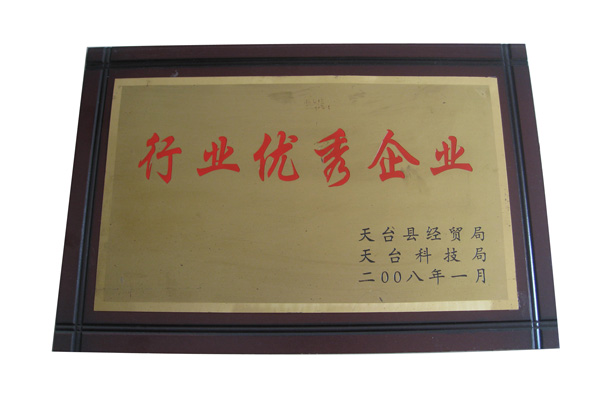 行业优秀企业
天台县经贸局
天台科技局
二00八年一月